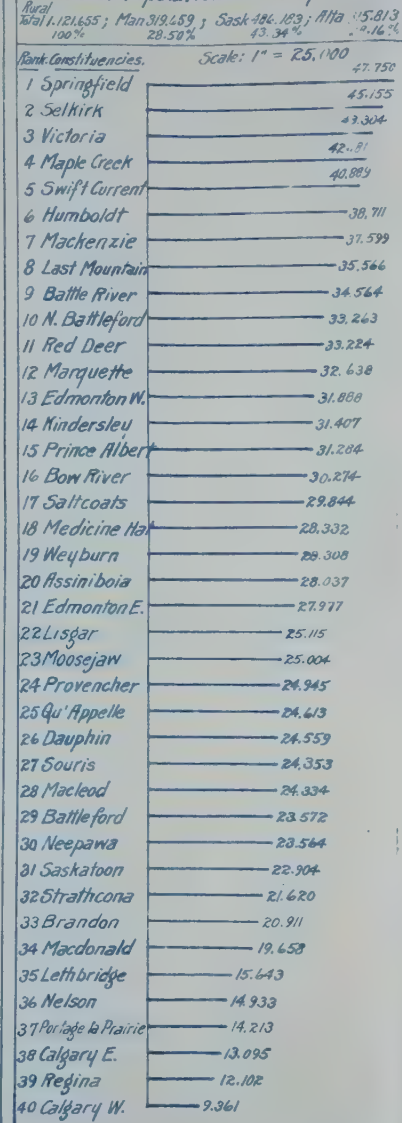 Rural
Total 1.121.655; Man 319.659; Sask 486.183; Alta 315.813
100% 28.50% 43.34% 28.16%
Rank. Constituencies. Scale: 1" = 25,000
1 Springfield 47.750
2 Selkirk 45.155
3 Victoria 43.304
4 Maple Creek
5 Swift Current 40.889
6 Humboldt 38,711
7 Mackenzie 37.599
8 Last Mountain 35.566
9 Battle River 34.564
10 N. Battleford 33,263
11 Red Deer 33.224
12 Marquette 32.638
13 Edmonton W. 31.888
14 Kindersley 31.407
15 Prince Albert 31.284
16 Bow River 30.274
17 Saltcoats 29.844
18 Medicine Hat 28,332
19 Weyburn 28.308
20 Assiniboia 28.037
21 Edmonton E. 27.977
22 Lisgar 25.115
23 Moosejaw 25.004
24 Provencher 24.945
25 Qu'Appelle 24.613
26 Dauphin 24.559
27 Souris 24,353
28 Macleod 24.334
29 Battleford 23.572
30 Neepawa 23.564
31 Saskatoon 22.904
32 Strathcona 21.620
33 Brandon 20.911
34 Macdonald 19.658
35 Lethbridge 15.643
36 Nelson 14.933
37 Portage la Prairie 14.213
38 Calgary E. 13.095
39 Regina 12.102
40 Calgary W. 9.361